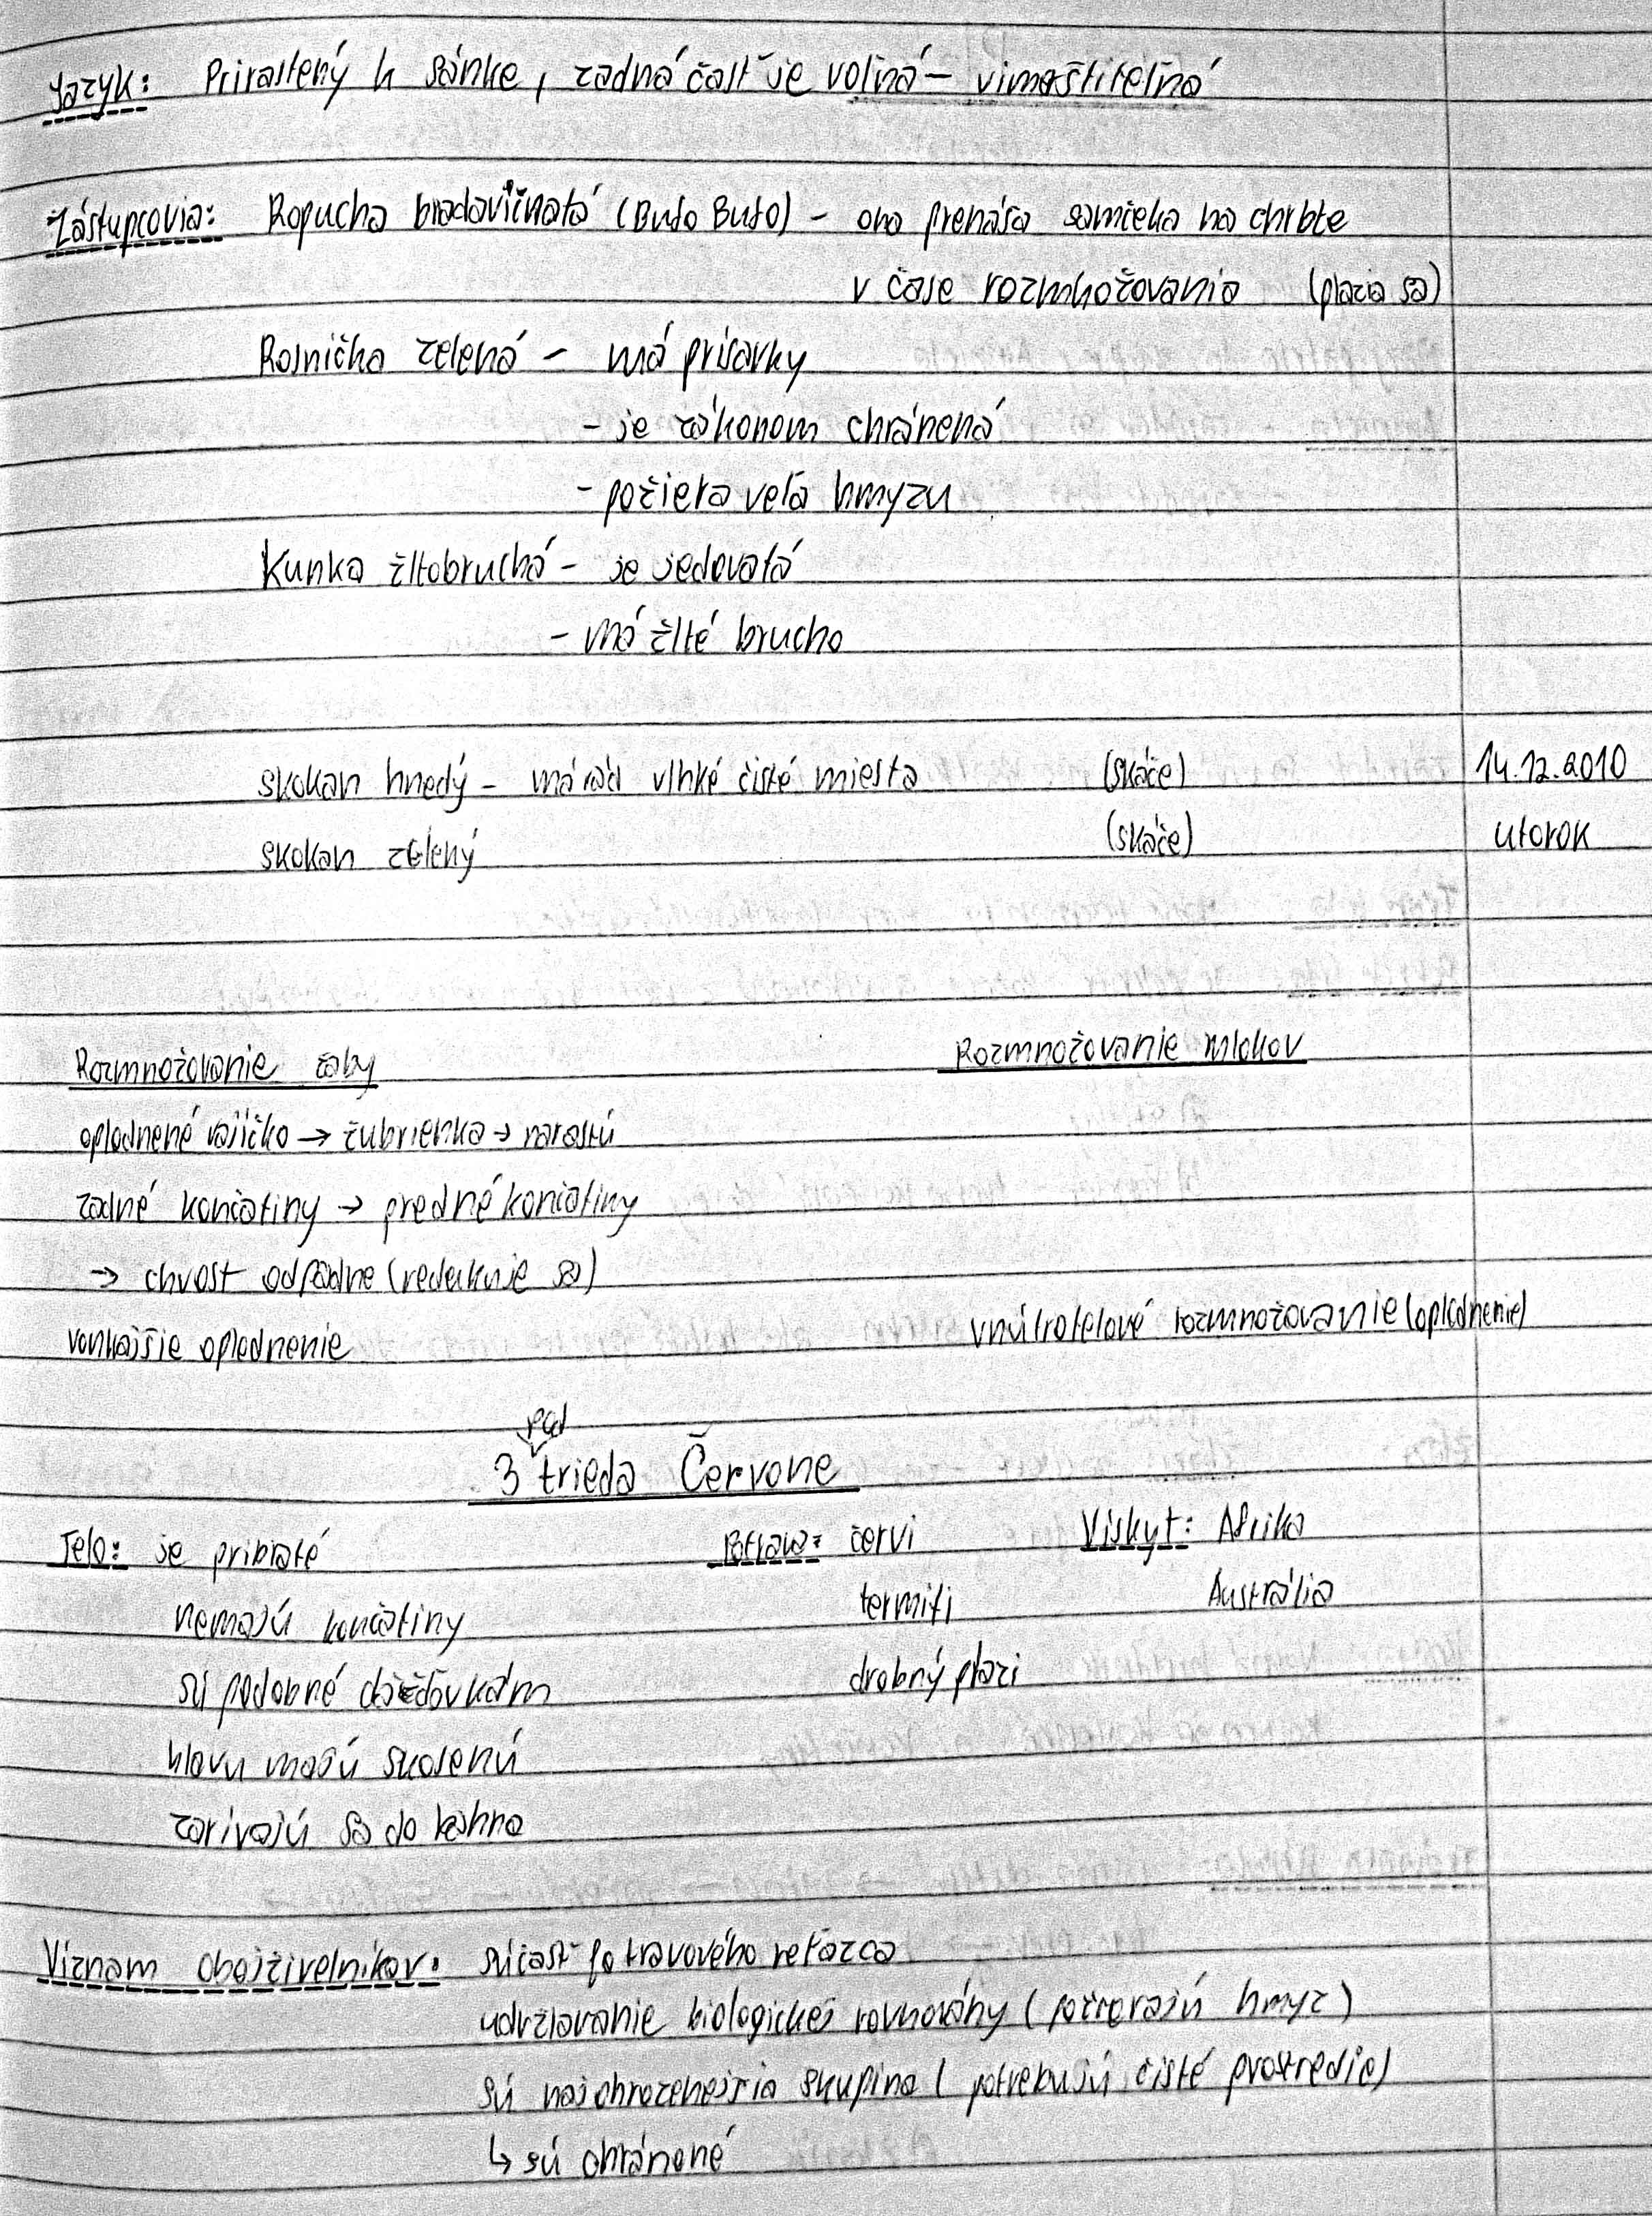 Jazyk: Prirastený k sánke, zadná časť je voľná – vimeštiteľná
Zástupcovia: Ropucha bradavičnatá (Bufo Bufo) – ona prenáša samčeka na chrbte
v čase rozmnožovania (plazia sa)
Rosnička zelená – má prísavky
- je zákonom chránená
- požiera veľa hmyzu
Kunka žltobruchá – je jedovatá
- má žlté brucho
skokan hnedý – má rád vlhké čisté miesta (skáče) 14.12.2010
skokan zelený (skáče) utorok
Rozmnožovanie žaby Rozmnožovanie mlokov
oplodnené vajíčko → žubrienka → narastú
zadné končatiny → predné končatiny
→ chvost odpadne (redukuje sa)
vonkajšie oplodnenie vnútrotelové rozmnožovanie (oplodnenie)
rad
3 trieda Červone
Telo: je pribiaté Potrava: červi Viskyt: Afrika
nemajú končatiny termiti Austrália
sú podobné dážďovkám drobný plazi
hlavu majú skosenú
zarívajú sa do bahna
Víznam obojživelníkov: súčasť potravového reťazca
udržiavanie biologickej rovnováhy (požierajú hmyz)
sú najohrozenejšia skupina (potrebujú čisté prostredie)
↳ sú chránené